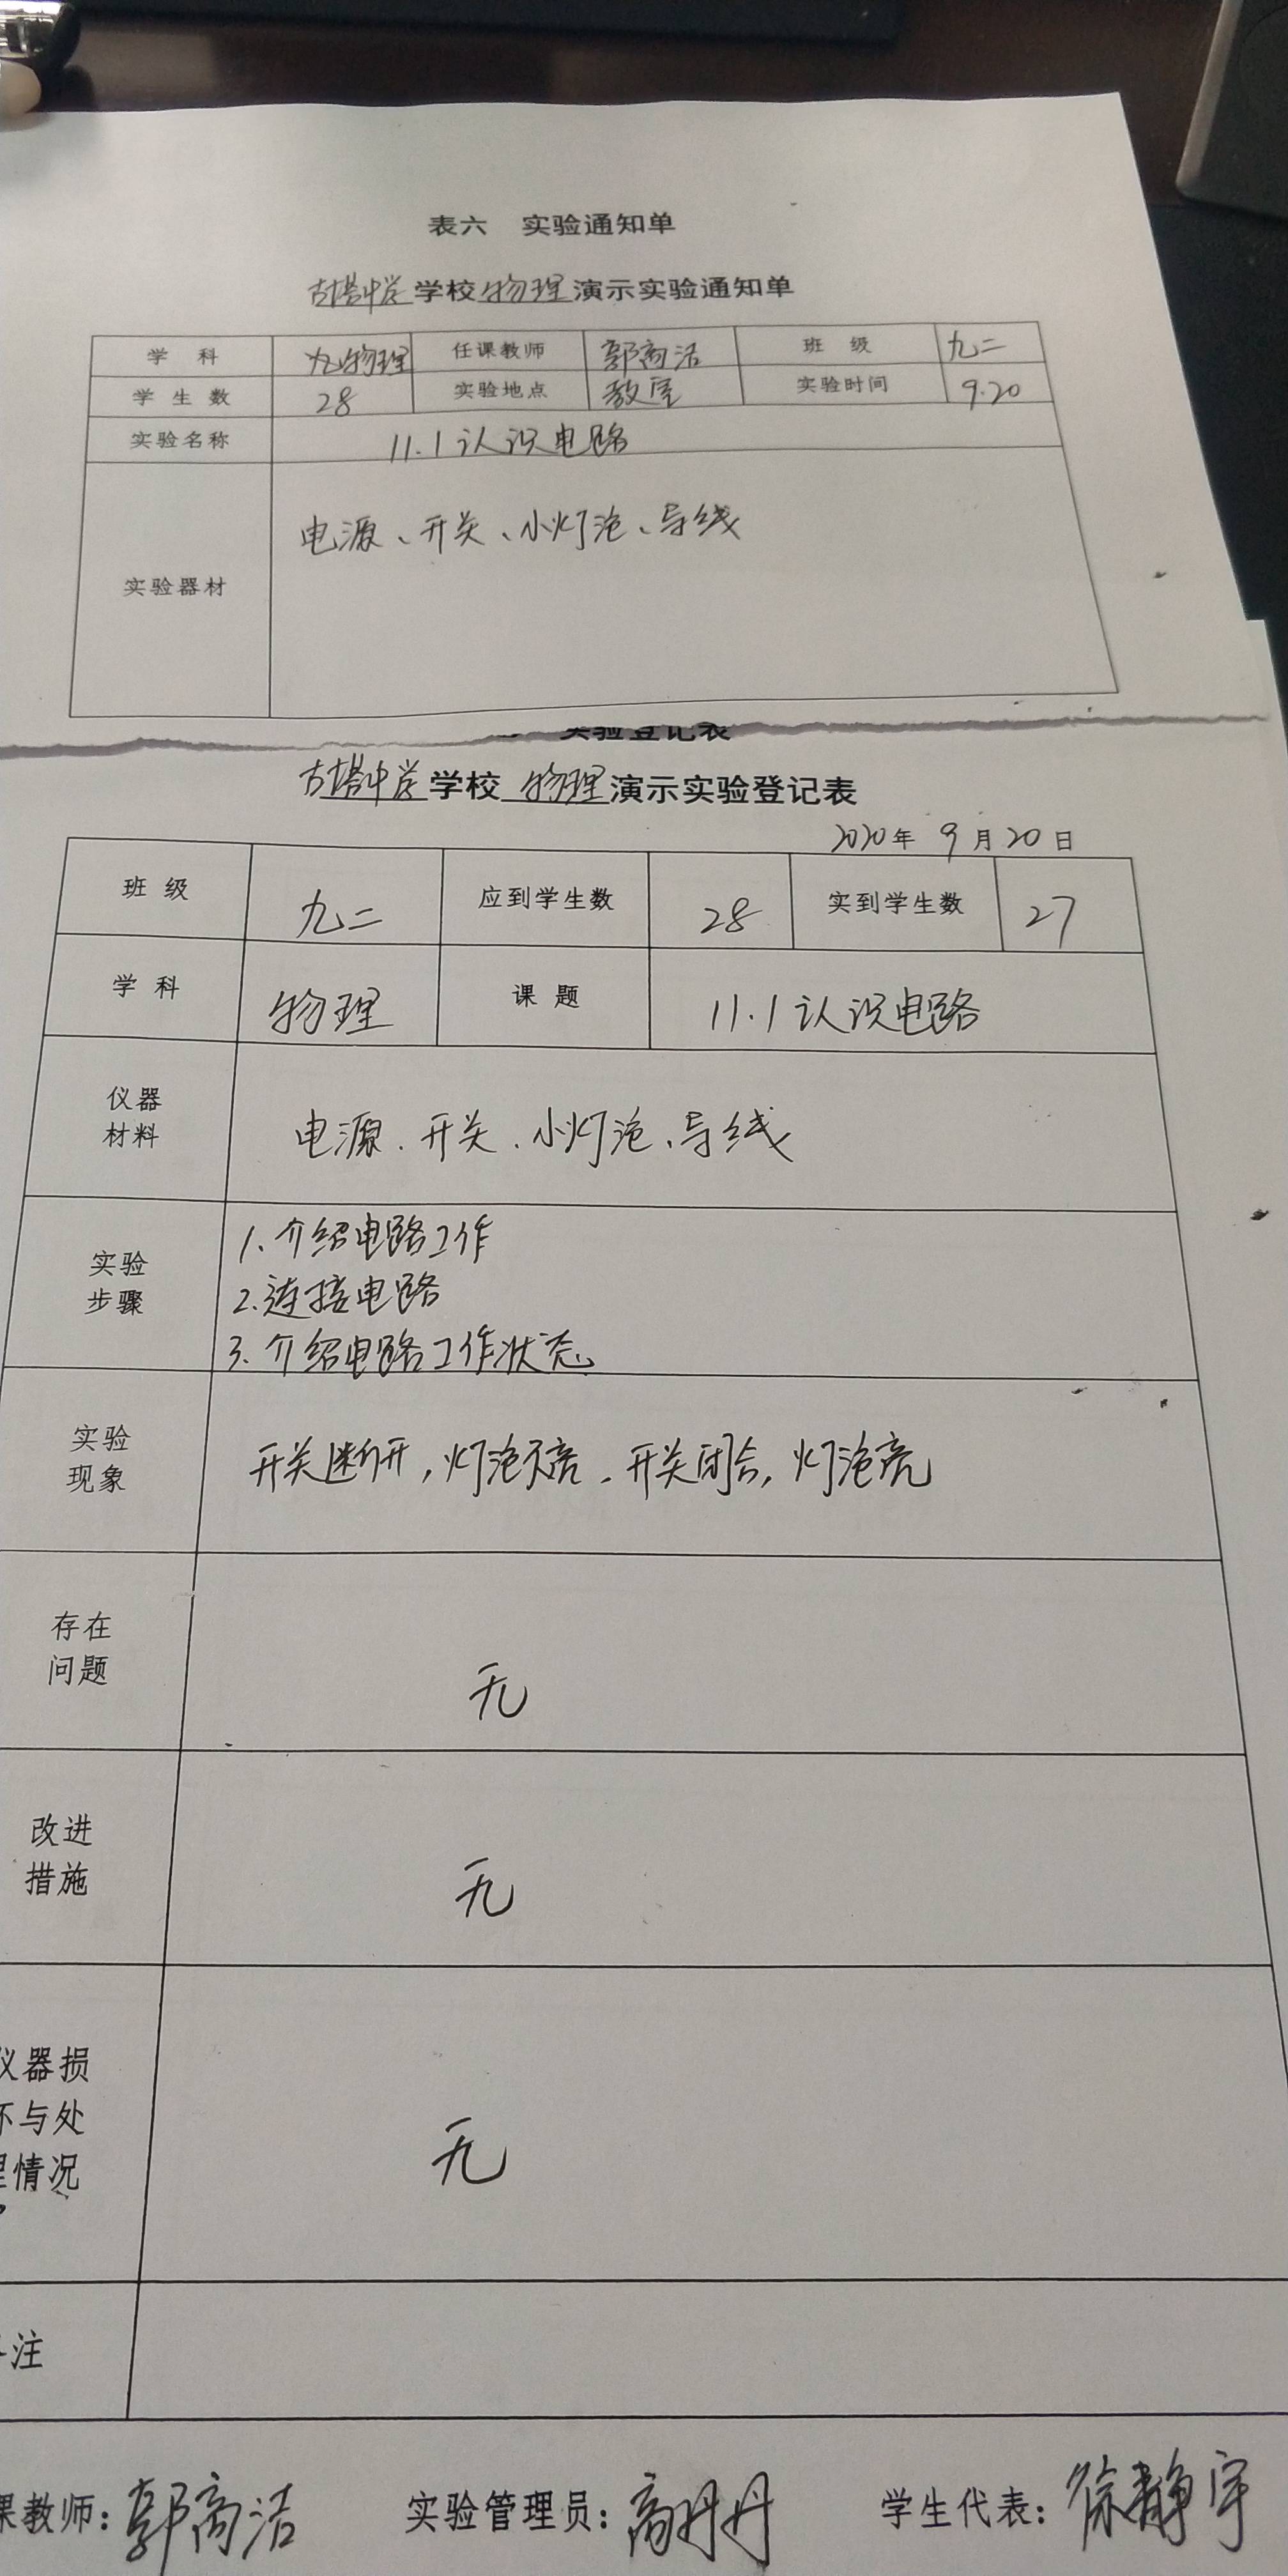 表六 实验通知单
古塔中学学校物理演示实验通知单
学科 九物理 任课教师 郭商洁 班级 九二
学生数 28 实验地点 教室 实验时间 9.20
实验名称 11.1认识电路
实验器材 电源、开关、小灯泡、导线
实验登记表
古塔中学学校物理演示实验登记表
2020年9月20日
班级 九二 应到学生数 28 实到学生数 27
学科 物理 课题 11.1认识电路
仪器
材料
电源、开关、小灯泡、导线
实验
步骤
1、介绍电路工作
2.连接电路
3、介绍电路工作状态
实验
现象
开关断开，灯泡不亮、开关闭合，灯泡亮
存在
问题
无
改进
措施
无
仪器损
坏与处
理情况
无
注
课教师：郭商洁 实验管理员：高丹丹 学生代表：徐静宇